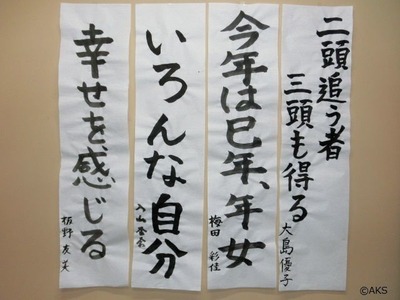 二頭追う者
三頭も得る
大島優子
今年は巳年、年女
梅田 彩佳
いろんな自分
入山杏奈
幸せを、感じる
板野友美
©AKS